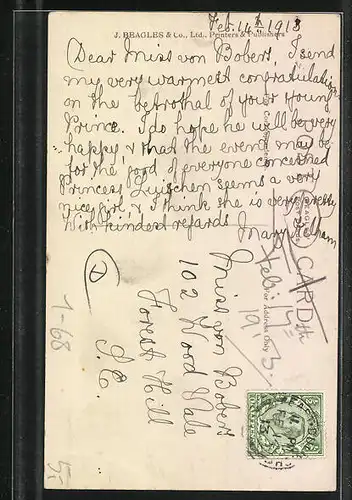 Feb. 14th 1913
J. BEAGLES & Co., Ltd., Printers & Publishers
Dear Miss von Bobers, I send
my very warmest congratulations
on the betrothal of your young
Prince. I do hope he will be very
happy, & that the event may be
for the good of everyone concerned
Princess Luischem seems a very
nice girl, & I think she is very pretty
With kindest regards Mary Pelham
Miss von Bobers
102 Wood Vale
Forest Hill
S.E.
CARD
Address Only
Feb: 14th
1913.
1-68
5,-